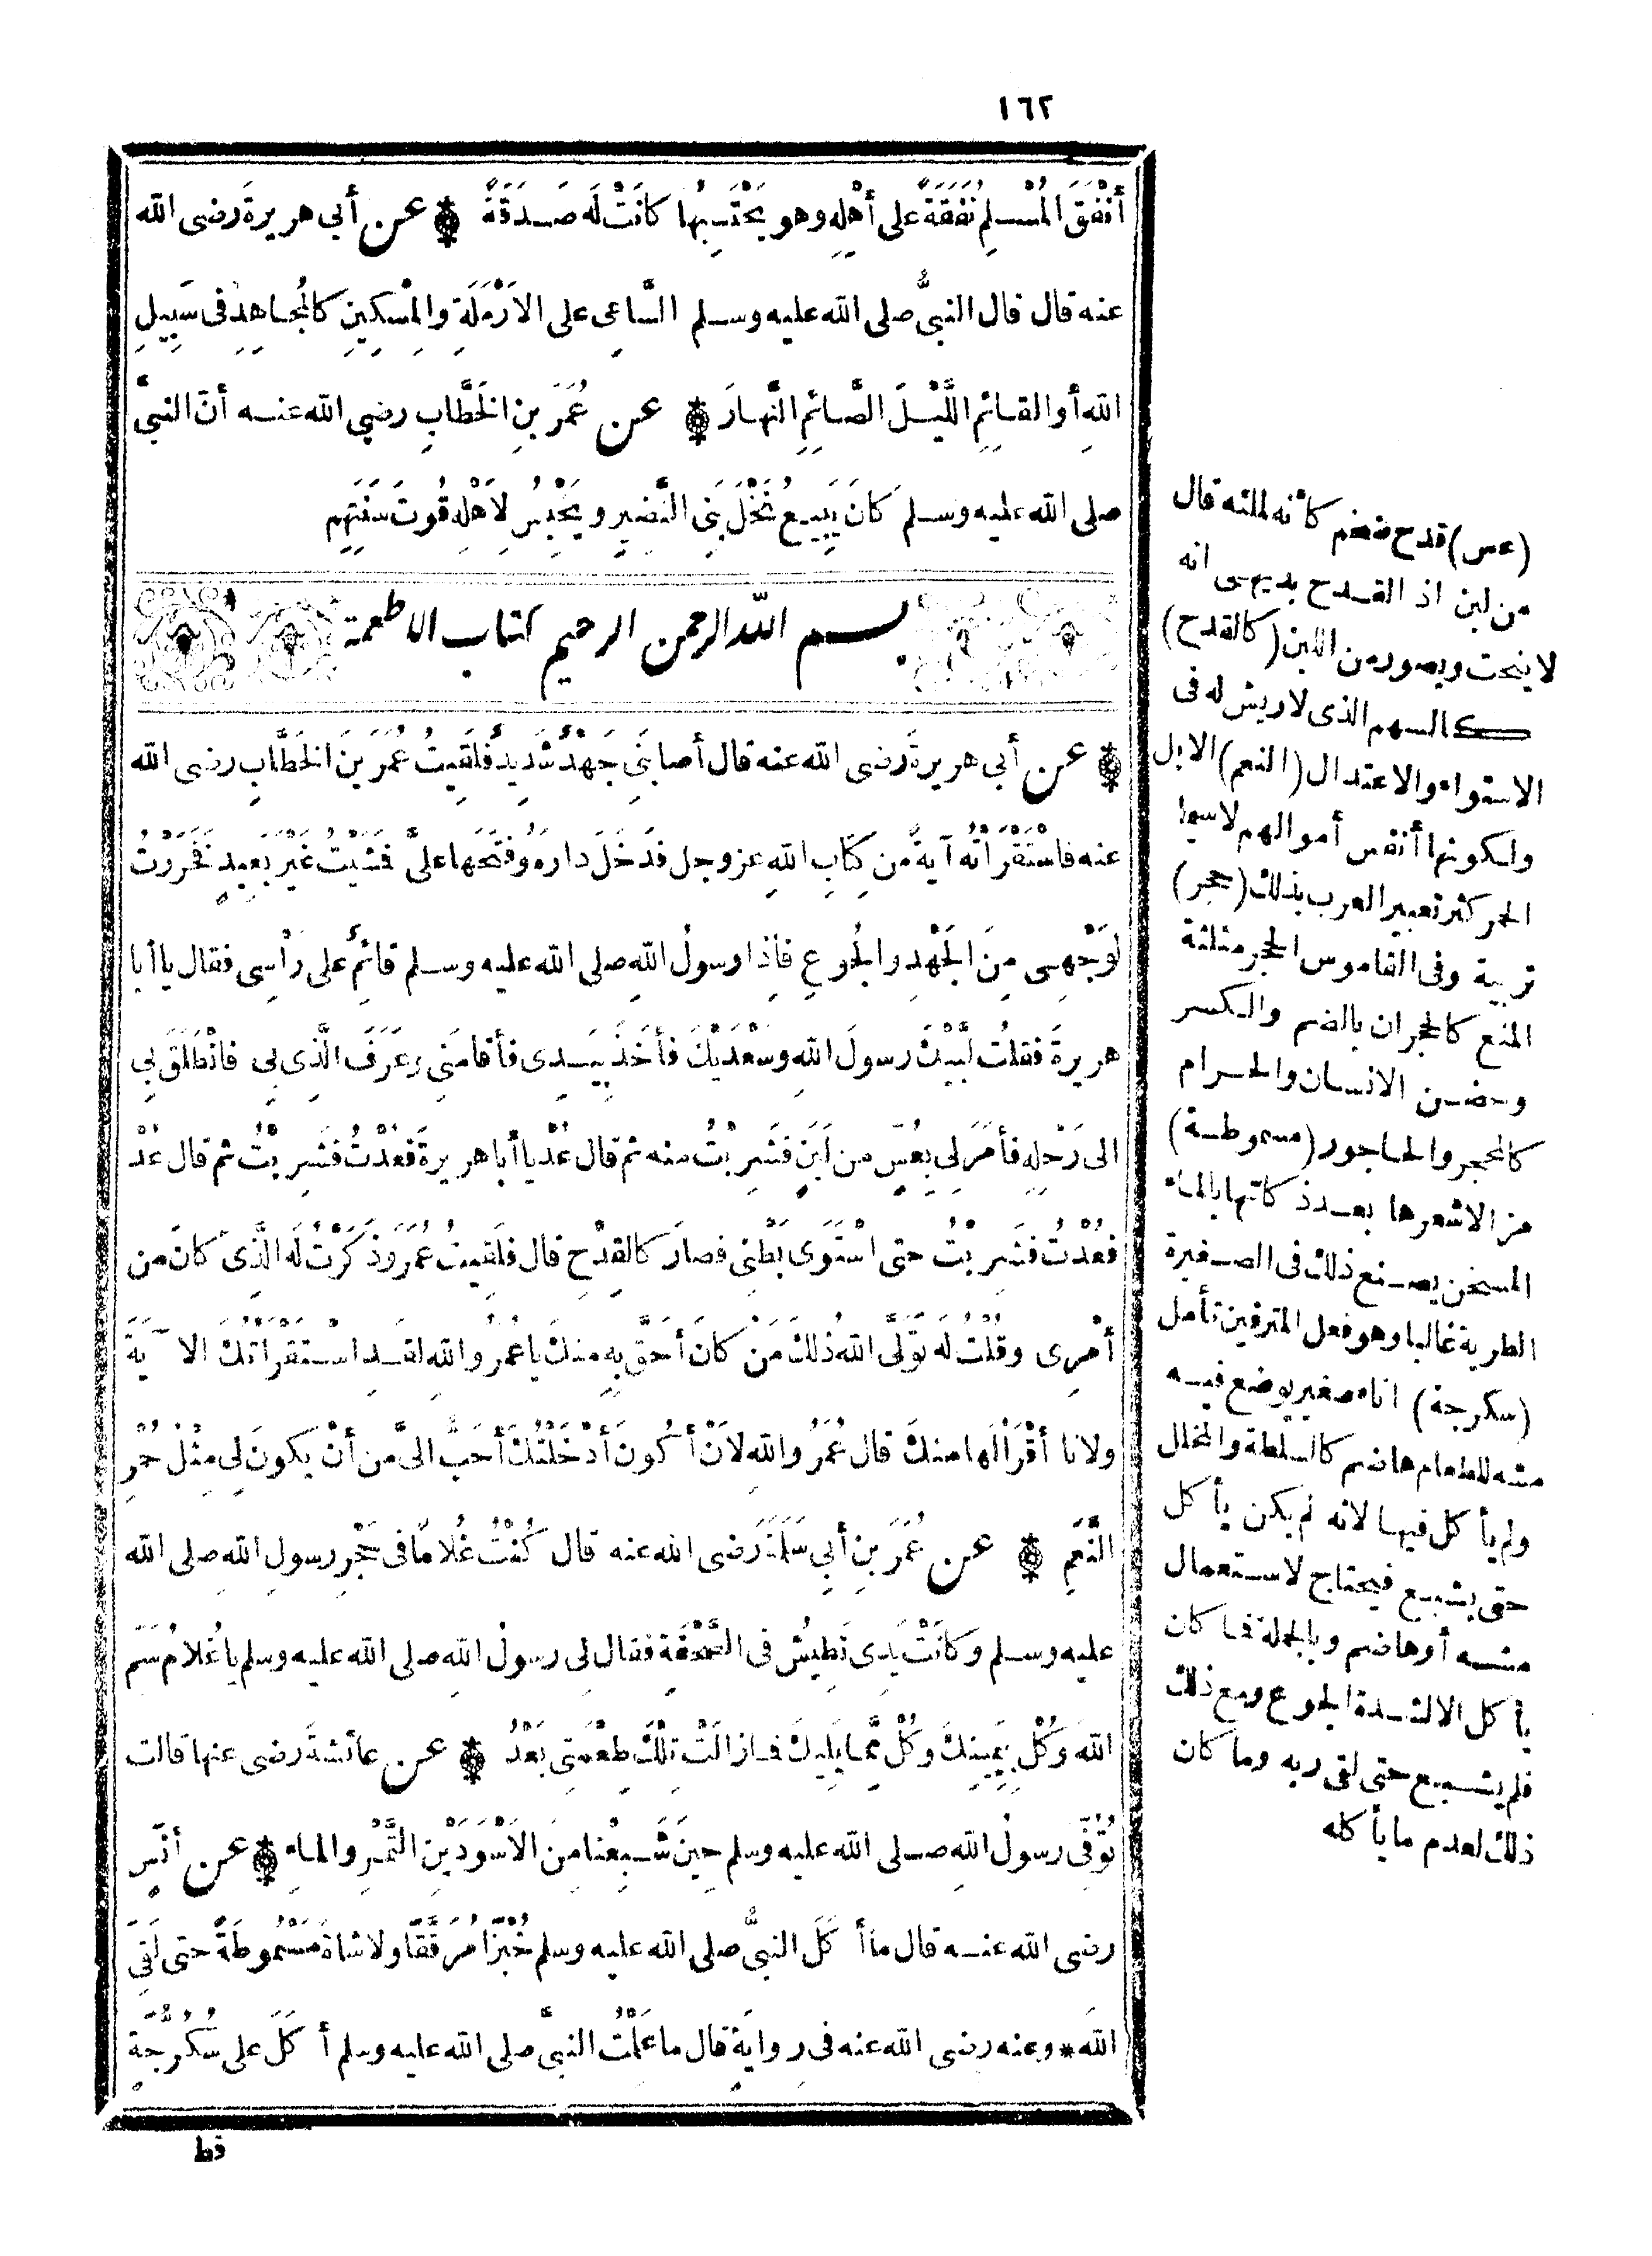 ١٦٢
أَنْفَقَ الْمُسْلِمُ نَفَقَةً على أَهْلِهِ وهو يَحْتَسِبُها كانَتْ لَه صَدَقَةً * عن أبي هريرةَ رضى الله
عنه قال قال النبىُّ صلى الله عليه وسلم السَّاعِى على الاَرْمَلَةِ والمِسْكِينِ كالمُجاهِدِ فى سَبِيلِ
اللهِ أو القائِمِ اللَّيْلَ الصَّائِمِ النَّهارَ * عن عُمَرَ بنِ الخَطَّابِ رضي الله عنه أنّ النبىَّ
صلى الله عليه وسلم كانَ يَبِيعُ نَخْلَ بَنِي النَّضِيرِ ويَحْبِسُ لِاَهْلِهِ قُوتَ سَنَتِهِم
بسم الله الرحمن الرحيم كتاب الاطعمة
* عن أبي هريرةَ رضى الله عنه قال أصابَنِي جَهْدٌ شَدِيدٌ فَلَقِيتُ عُمَرَ بنَ الخَطَّابِ رضى الله
عنه فاسْتَقْرَأْتُه آيةً من كِتابِ اللهِ عز وجل فدَخَلَ دارَه وفَتَحَها علىَّ فمَشَيْتُ غَيْرَ بَعِيدٍ فَخَرَرْتُ
لوَجْهِى مِنَ الجَهْدِ والجُوعِ فاِذا رسولُ اللهِ صلى الله عليه وسلم قائِمٌ على رَأْسِى فقال يا أبا
هريرةَ فقلتُ لَبَّيْكَ رسولَ اللهِ وسَعْدَيْكَ فأخَذَ بِيَدِى فأقامَنِي وعَرَفَ الَّذِى بِي فانْطَلَقَ بِي
الى رَحْلِهِ فأمَرَ لِي بِعُسٍّ من لَبَنٍ فشَرِبْتُ منه ثم قال عُدْ يا أبا هريرةَ فعُدْتُ فشَرِبْتُ ثم قال عُدْ
فعُدْتُ فشَرِبْتُ حتى اسْتَوَى بَطْنِى فصارَ كالقِدْحِ قال فلَقِيتُ عُمَرَ وذَكَرْتُ لَه الَّذِى كانَ من
أمْرِى وقُلْتُ لَه تَوَلَّى اللهُ ذٰلكَ مَنْ كانَ أحَقَّ بِهِ منكَ يا عُمَرُ واللهِ لقَدِ اسْتَقْرَأْتُكَ الآيَةَ
ولانا أقْرَأُ لَها منكَ قال عُمَرُ واللهِ لاَنْ أكُونَ أدْخَلْتُكَ أحَبُّ الىَّ من أنْ يكونَ لِي مِثْلُ حُمْرِ
النَّعَمِ * عن عُمَرَ بنِ أبي سَلَمَةَ رَضى الله عنه قال كُنْتُ غُلامًا فى حَجْرِ رسولِ اللهِ صلى الله
عليه وسلم وكانَتْ يَدِى تَطِيشُ فى الصَّحْفَةِ فقال لِى رسولُ اللهِ صلى الله عليه وسلم يا غُلامُ سَمِّ
اللهَ وكُلْ بِيَمِينِكَ وكُلْ مِمَّا يَلِيكَ فما زالَتْ تِلْكَ طِعْمَتِي بَعْدُ * عن عائشةَ رضى عنها قالت
تُوُفِّىَ رسولُ اللهِ صلى الله عليه وسلم حِينَ شَبِعْنا مِنَ الاَسْوَدَيْنِ التَّمْرِ والماءِ * عن أنَسٍ
رضى الله عنه قال ما أكَلَ النبىُّ صلى الله عليه وسلم خُبْزًا مُرَقَّقًا ولا شاةً مَسْمُوطَةً حتى لَقِىَ
اللهَ * وعنه رضى الله عنه فى رِوايَةٍ قال ما عَلِمْتُ النبىَّ صلى الله عليه وسلم أكَلَ على سُكُرُّجَةٍ
قط
(عس) قدح ضخم كأنه لملئه قال
من لبن اذ القدح بديهى انه
لا ينحت ويصور من اللبن (كالقدح)
كالسهم الذى لا ريش له فى
الاستواء والاعتدال (النعم) الابل
ولكونها أنفس أموالهم لاسيما
الحمر كثر تعبير العرب بذلك (حجر)
تربية وفى القاموس الحجر مثلثة
المنع كالحجران بالضم والكسر
وحضن الانسان والحرام
كالمحجر والحاجور (مسموطة)
مزال شعرها بعد ذكاتها بالماء
المسخن يصنع ذلك فى الصغيرة
الطرية غالبا وهو فعل المترفين تأمل
(سكرجة) اناء صغير يوضع فيه
مشه للطعام هاضم كالسلطة والمخلل
ولم يأكل فيها لانه لم يكن يأكل
حتى يشبع فيحتاج لاستعمال
مشه أو هاضم وبالجملة فما كان
يأكل الا لشدة الجوع ومع ذلك
فلم يشبع حتى لقى ربه وما كان
ذلك لعدم ما يأكله